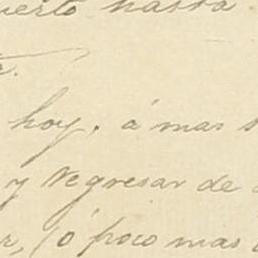 hasta
hoy, á mas
y regresar de
(ó poco mas